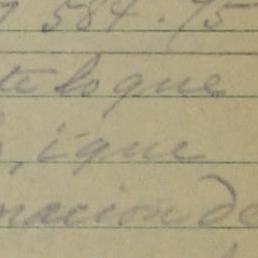 584.75
te lo que
, i que
nacion de